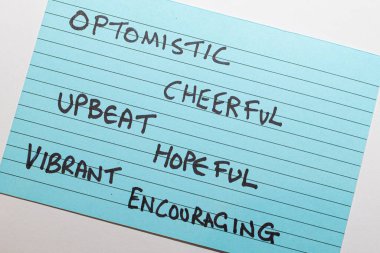 OPTOMISTIC
CHEERFUL
UPBEAT
HOPEFUL
VIBRANT
ENCOURAGING